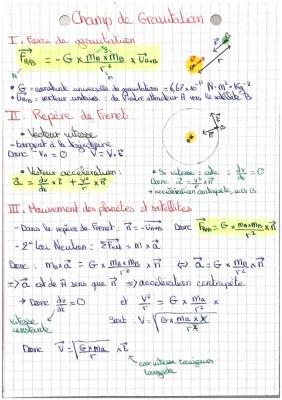 Champ de Gravitation
I. Force de gravitation
F⃗A/B = - G × mA × mB / r² × u⃗A→B
• G = constante universelle de gravitation = 6,67 × 10⁻¹¹ N·m²·kg⁻²
II. Repère de Frenet
• Vecteur vitesse
- tangent à la trajectoire
Donc Vn = 0 V = Vt
• Vecteur accélération :
a⃗ = dv/dt × t⃗ + v²/r × n⃗
• Si vitesse = cste : dv/dt = 0
Donc a⃗ = v²/r × n⃗
III. Mouvement des planètes et satellites
- Dans le repère de Frenet : n⃗ = - u⃗A→B Donc F⃗A/B = G × mA×mB / r² × n⃗
- 2e loi Newton : ΣF⃗ext = m × a⃗
Donc : mB × a⃗ = G × mA × mB / r² × n⃗ ⇔ a⃗ = G × mA / r² × n⃗
⇒ a⃗ est de même sens que n⃗ ⇒ accélération centripète
→ Donc dv/dt = 0 et v²/r = G × mA / r²
vitesse constante
Soit : V = √(G × mA × r / r²)
Donc V⃗ = √(G × mA / r) × t⃗
car vitesse toujours
tangente